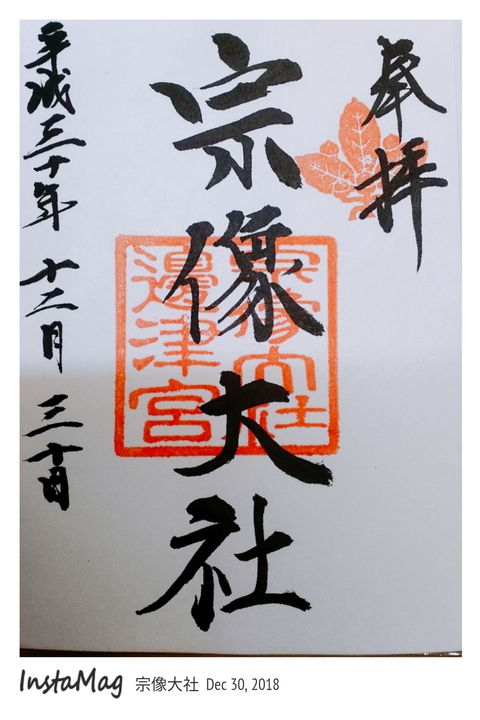 奉拝
宗像大社
宗像大社
邊津宮
平成三十年 十二月 三十日
InstaMag 宗像大社 Dec 30, 2018